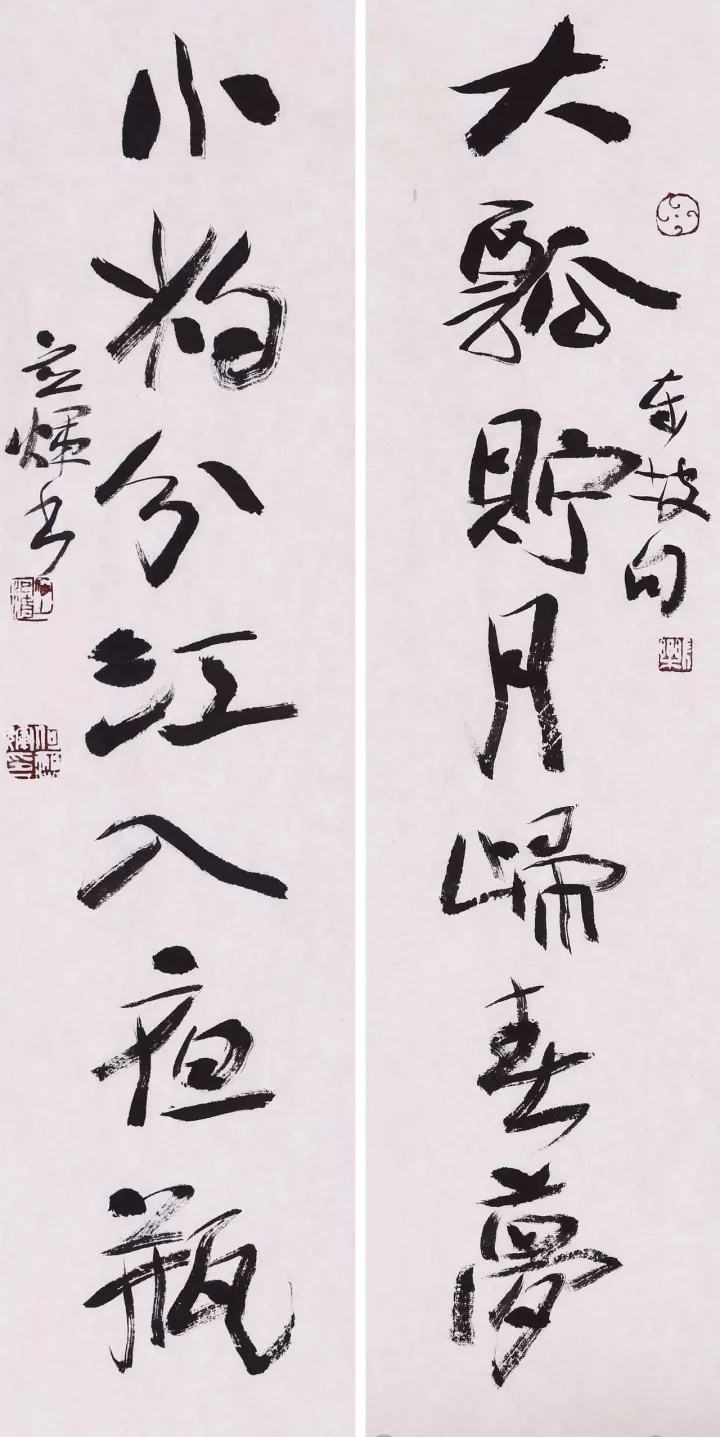 大瓢貯月歸春夢
东坡句
小杓分江入夜瓶
立煇书